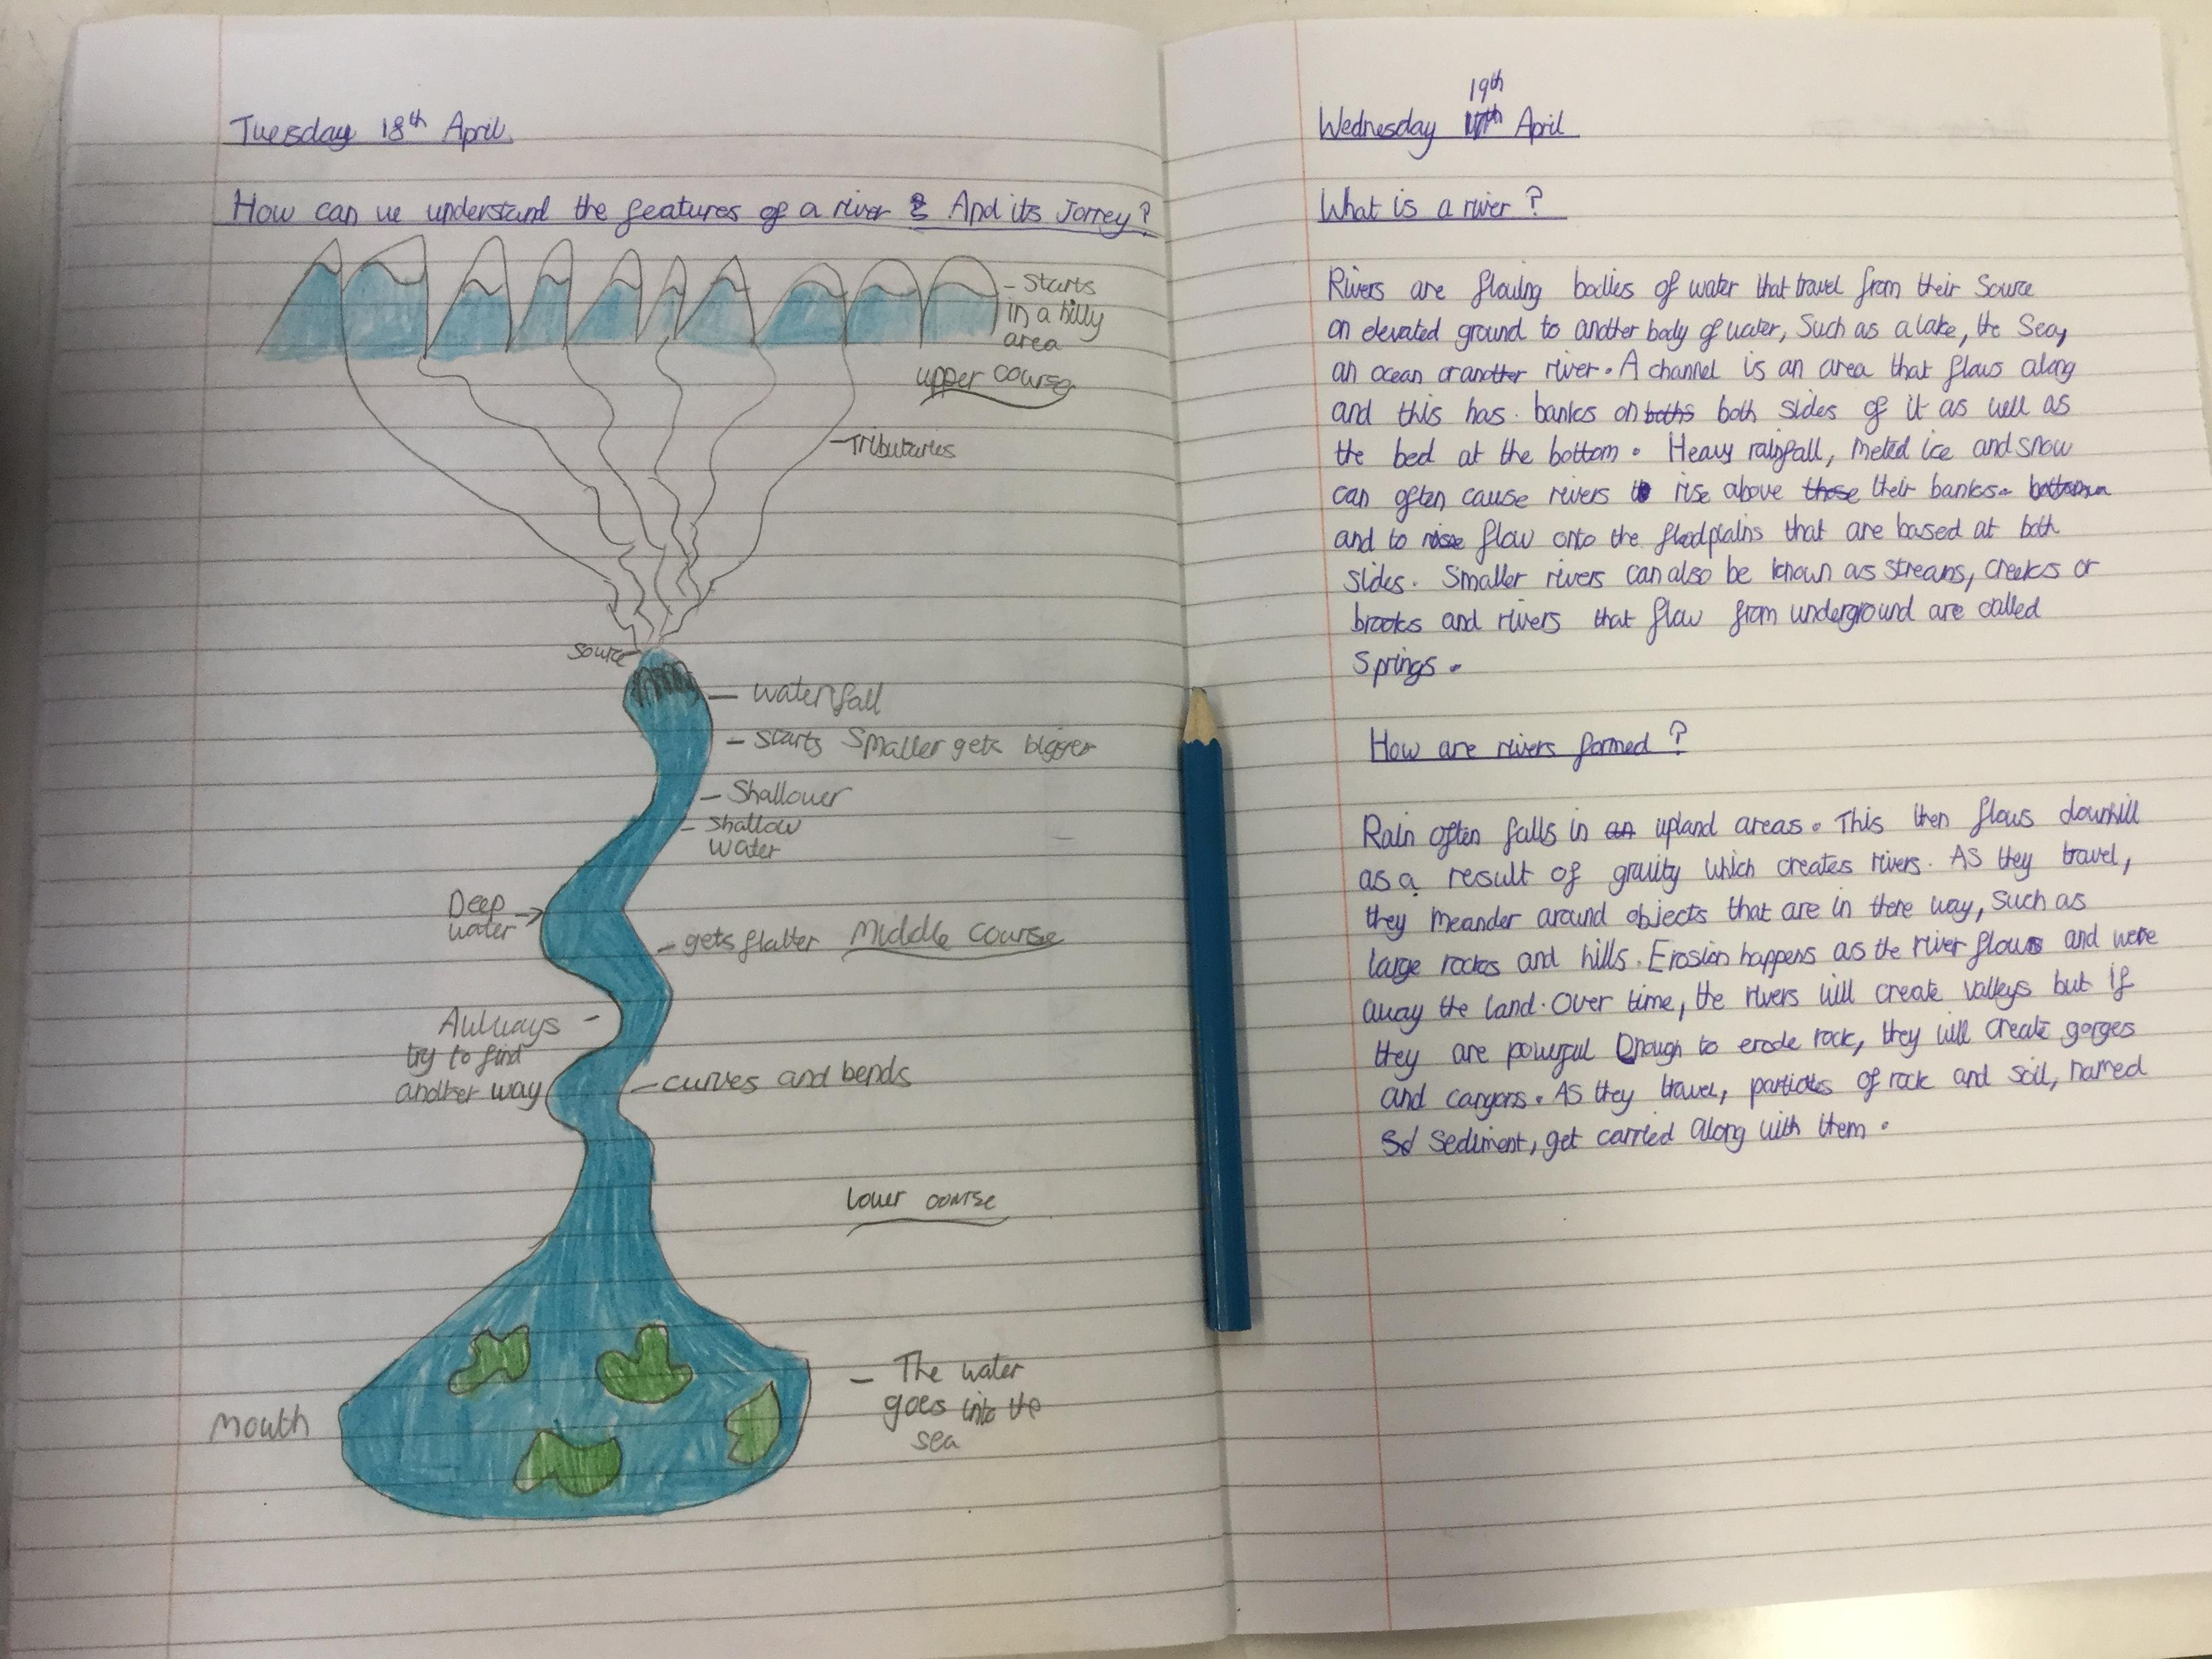 Tuesday 18th April.
How can we understand the features of a river & And its Jorrey?
- Starts
in a hilly
area
upper course
-Tributaries
Source
- waterfall
- starts Smaller gets bigger
- Shallower
- shallow
water
Deep
water
- gets flatter Middle course
Aulways
try to find
another way
-curves and bends
lower course
- The water
goes into the
sea
Mouth
19th
Wednesday 17th April
What is a river?
Rivers are flowing bodies of water that travel from their Source
on elevated ground to another body of water, Such as a lake, the Sea,
an ocean or another river. A channel is an area that flows along
and this has. banks on boths both sides of it as well as
the bed at the bottom. Heavy rainfall, melted ice and snow
can often cause rivers to rise above those their banks. bottom
and to rise flow onto the floodplains that are based at both
sides. Smaller rivers can also be known as streams, creeks or
brooks and rivers that flow from underground are called
Springs.
How are rivers formed?
Rain often falls in an upland areas. This then flows downhill
as a result of gravity which creates rivers. As they travel,
they meander around objects that are in there way, Such as
large rocks and hills. Erosion happens as the river flows and were
away the land. Over time, the rivers will create valleys but if
they are powerful Enough to erode rock, they will create gorges
and canyons. As they travel, particles of rock and soil, named
Sd Sediment, get carried along with them.